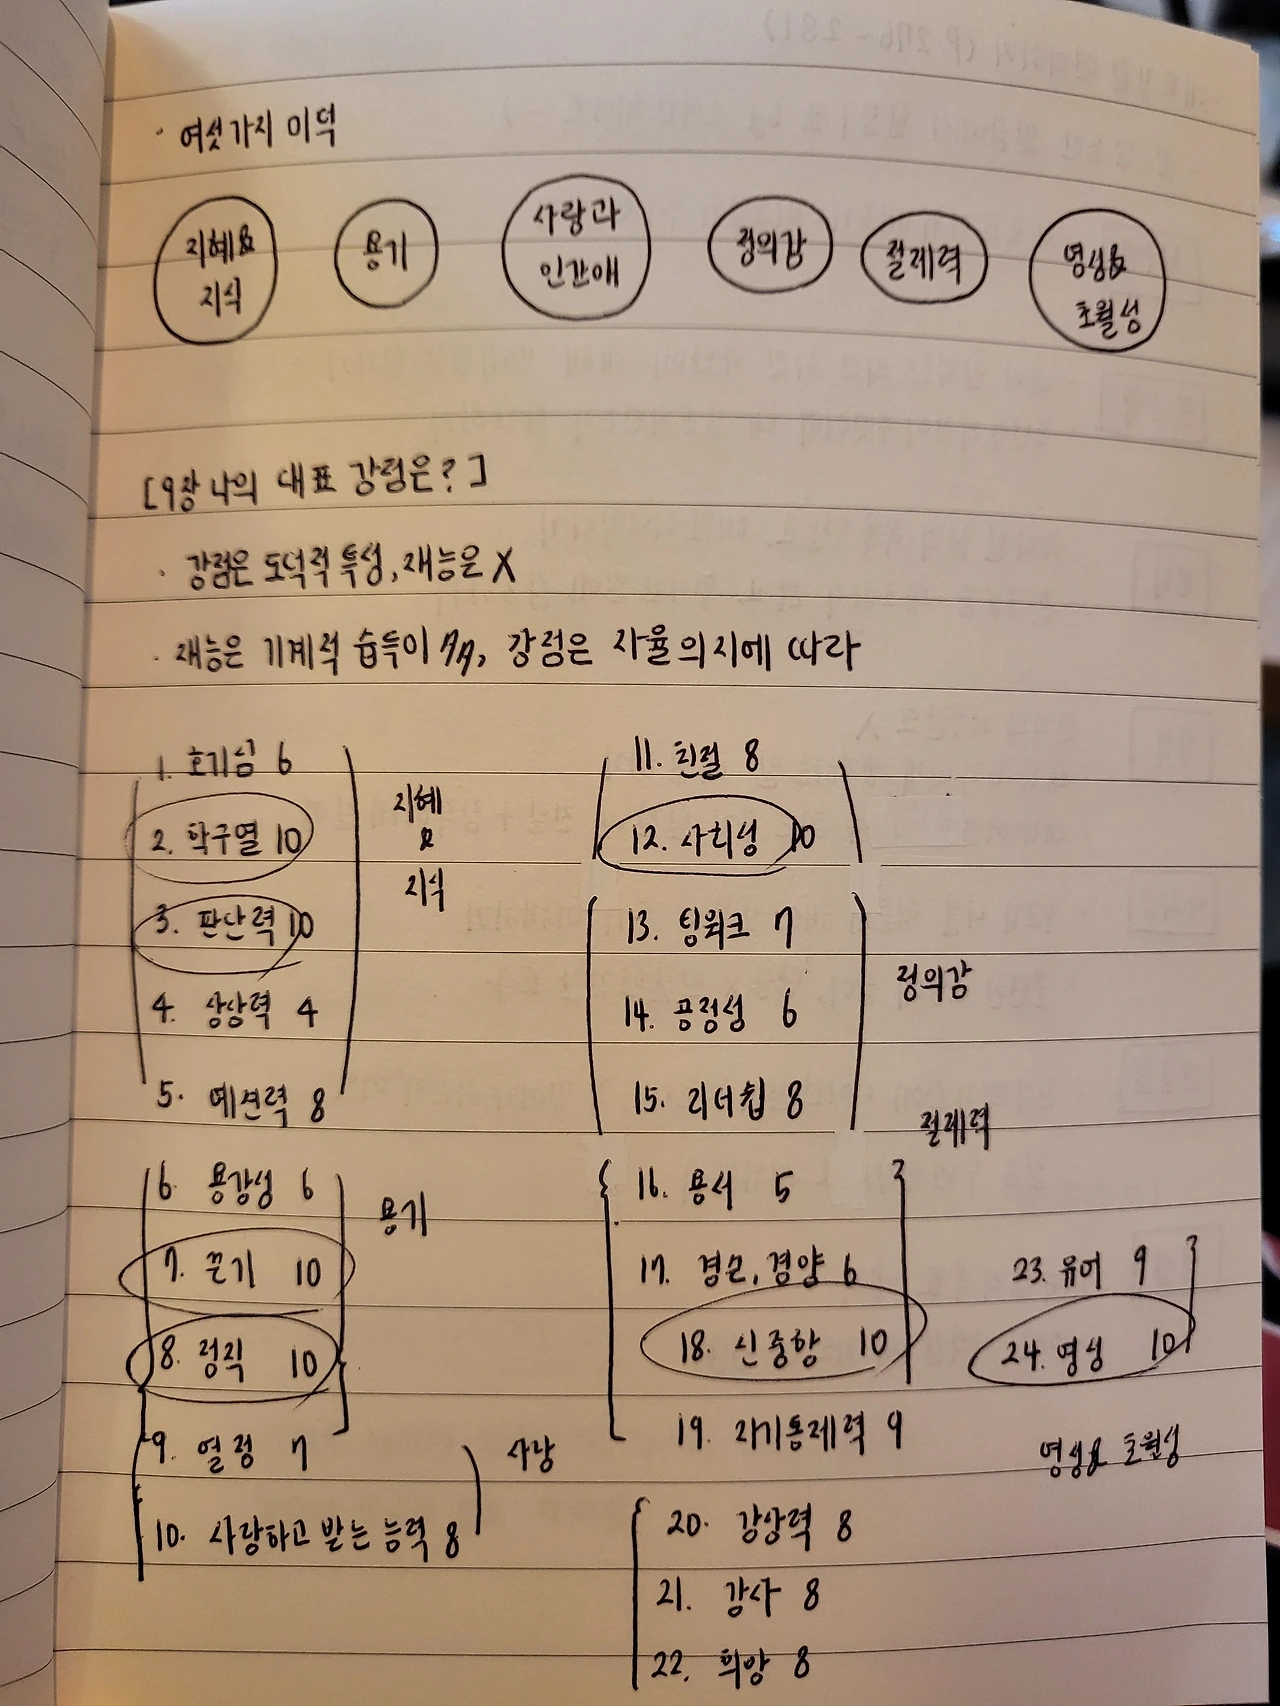 · 여섯가지 미덕
지혜&
지식
용기
사랑과
인간애
정의감
절제력
영성&
초월성
[9장 나의 대표 강점은?]
· 강점은 도덕적 특성, 재능은 X
· 재능은 기계적 습득이 가까, 강점은 자율의지에 따라
1. 호기심 6
2. 학구열 10
3. 판단력 10
4. 상상력 4
5. 예견력 8
지혜
&
지식
6. 용감성 6
7. 끈기 10
8. 정직 10
9. 열정 7
용기
10. 사랑하고 받는 능력 8
사랑
11. 친절 8
12. 사회성 10
13. 팀워크 7
14. 공정성 6
15. 리더쉽 8
정의감
절제력
16. 용서 5
17. 겸손, 겸양 6
18. 신중함 10
19. 자기통제력 9
20. 감상력 8
21. 감사 8
22. 희망 8
23. 유머 9
24. 영성 10
영성& 초월성